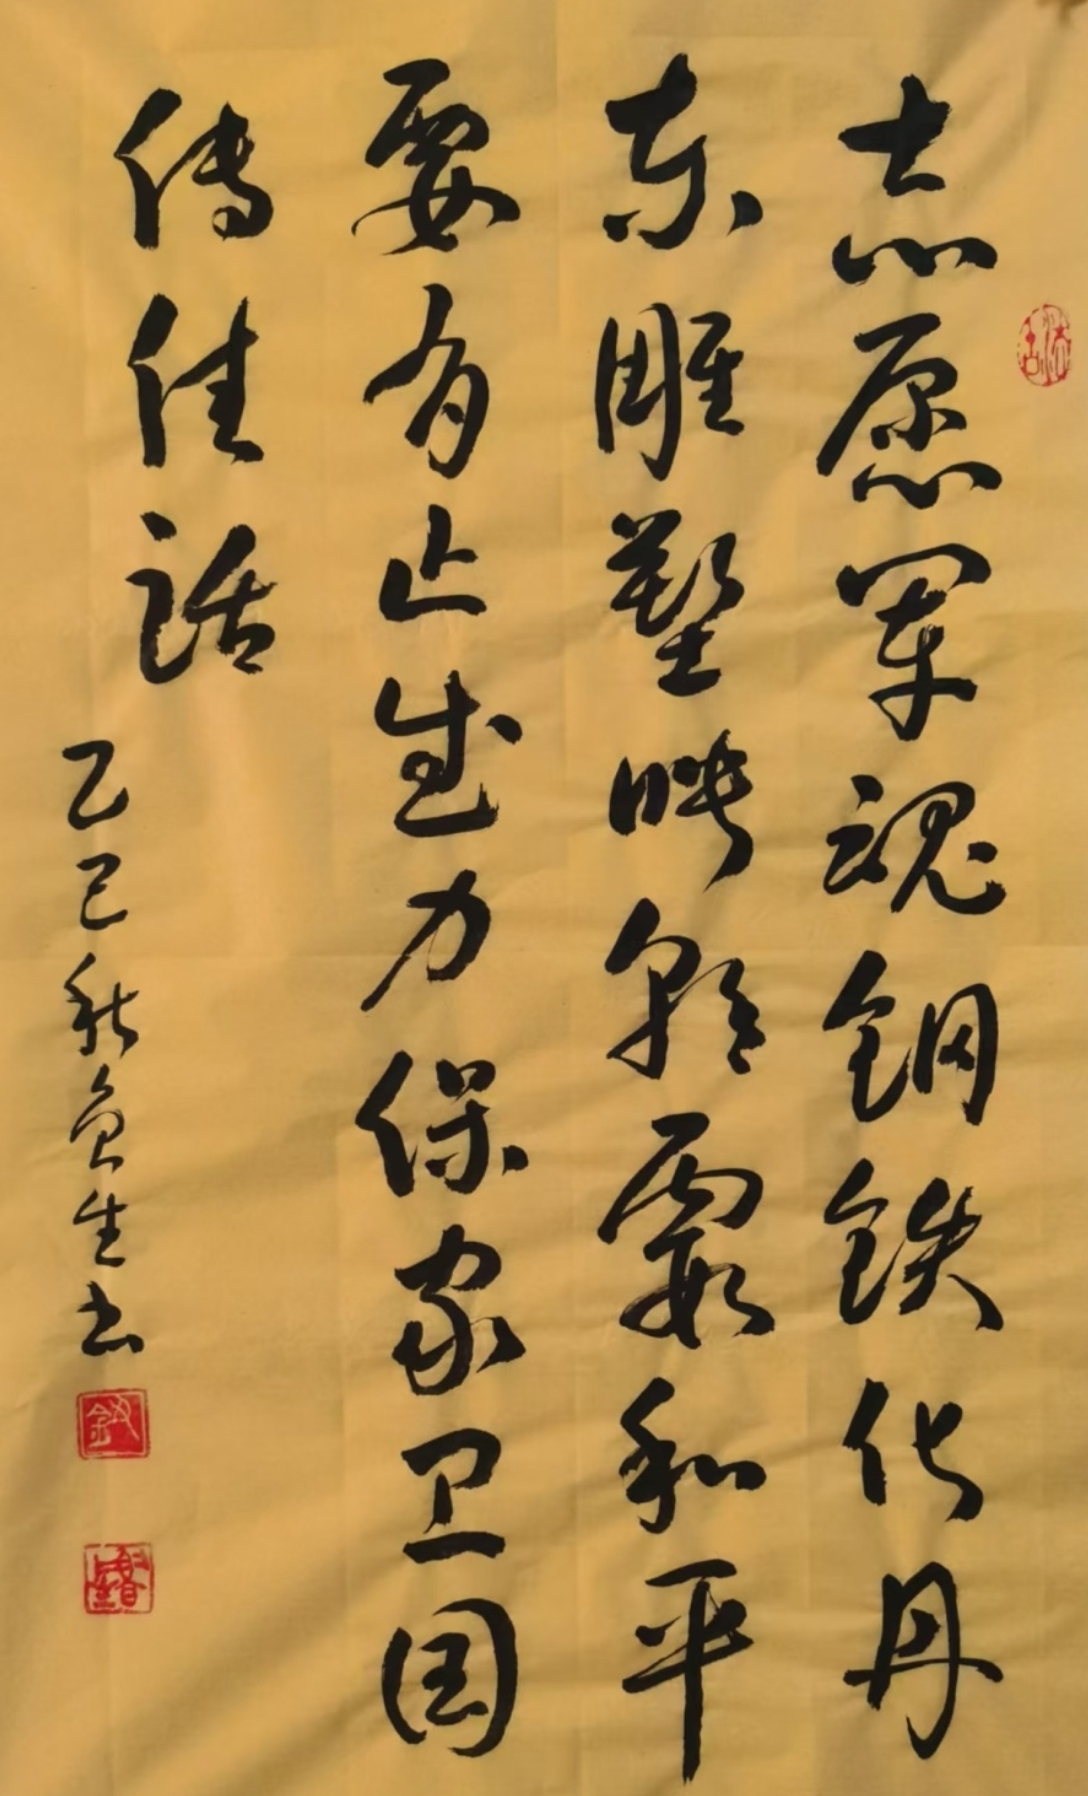 志愿军魂钢铁化丹
东雕塑映朝霞和平
要有止战力保家卫国
传佳话
乙巳秋生书